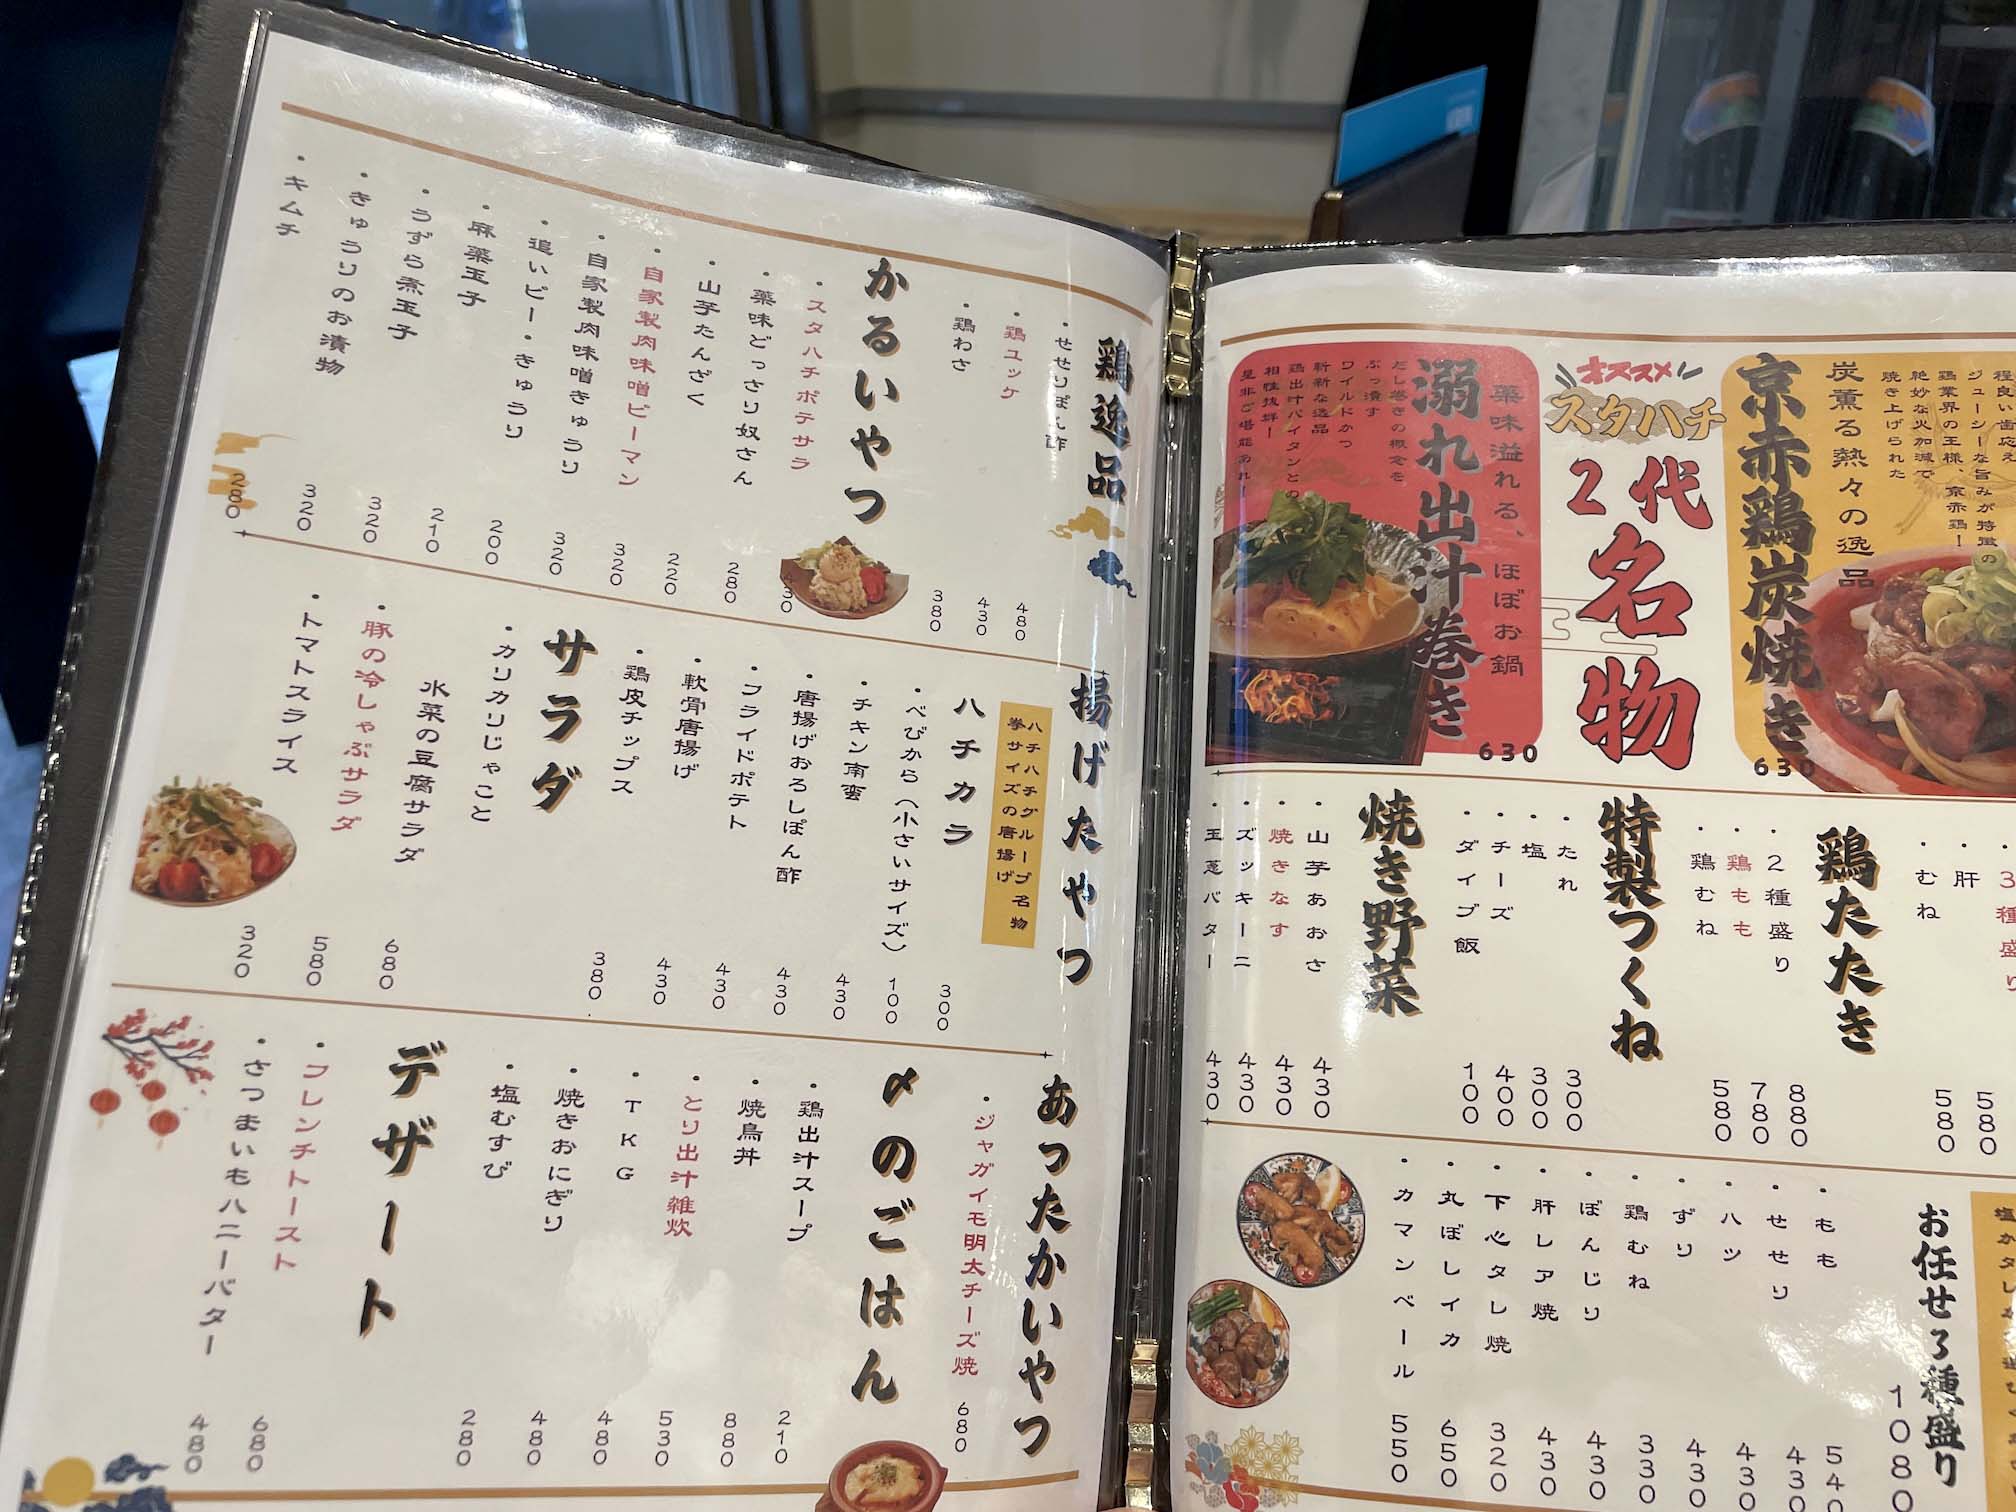 程良い歯応え
ジューシーな旨みが特徴の
鶏業界の王様、京赤鶏!
絶妙な火加減で
焼き上げられた
炭薫る熱々の逸品
京赤鶏炭焼き
630
オススメ
スタハチ
2代名物
薬味溢れる、ほぼお鍋
溺れ出汁巻き
だし巻きの概念を
ぶっ潰す
ワイルドかつ
斬新な逸品
鶏出汁パイタンとの
相性抜群!
是非ご堪能あれ!
630
・3種盛り
・肝 580
・むね 580
鶏たたき
・2種盛り 880
・鶏もも 780
・鶏むね 580
特製つくね
・たれ 300
・塩 300
・チーズ 400
・ダイブ飯 100
焼き野菜
・山芋あおさ 430
・焼きなす 430
・ズッキーニ 430
・玉葱バター 430
お任せ3種盛り
1080
・もも 540
・せせり 430
・ハツ 430
・ずり 430
・鶏むね 330
・ぼんじり 430
・肝レア焼 430
・下心タレ焼 320
・丸ぼしイカ 650
・カマンベール 550
鶏逸品
・せせりぽん酢 480
・鶏ユッケ 430
・鶏わさ 380
かるいやつ
・スタハチポテサラ 430
・薬味どっさり奴さん 280
・山芋たんざく 220
・自家製肉味噌ピーマン 320
・自家製肉味噌きゅうり 320
・追いピー・きゅうり 200
・麻薬玉子 210
・うずら煮玉子 320
・きゅうりのお漬物 320
・キムチ 280
揚げたやつ
ハチハチグループ名物
拳サイズの唐揚げ
ハチカラ 300
・べびから(小さいサイズ) 100
・チキン南蛮 430
・唐揚げおろしぽん酢 430
・フライドポテト 430
・軟骨唐揚げ 430
・鶏皮チップス 380
サラダ
・カリカリじゃこと
水菜の豆腐サラダ 680
・豚の冷しゃぶサラダ 580
・トマトスライス 320
あったかいやつ
・ジャガイモ明太チーズ焼 680
〆のごはん
・鶏出汁スープ 210
・焼鳥丼 880
・とり出汁雑炊 530
・TKG 480
・焼きおにぎり 480
・塩むすび 280
デザート
・フレンチトースト 680
・さつまいもハニーバター 480